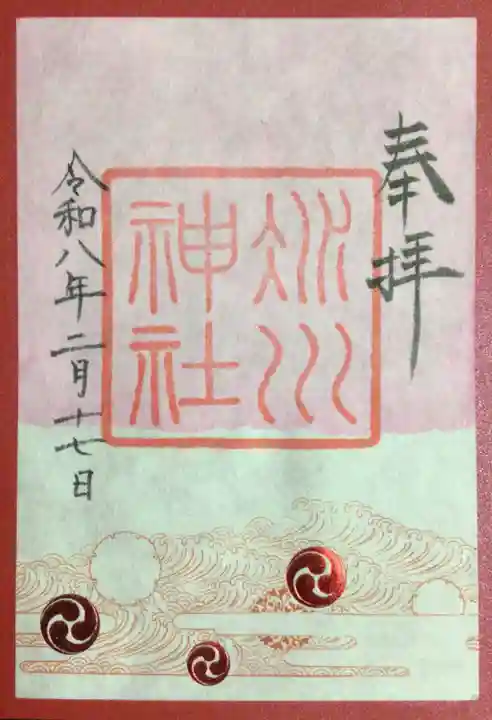 奉拝
氷川
神社
令和八年二月十七日